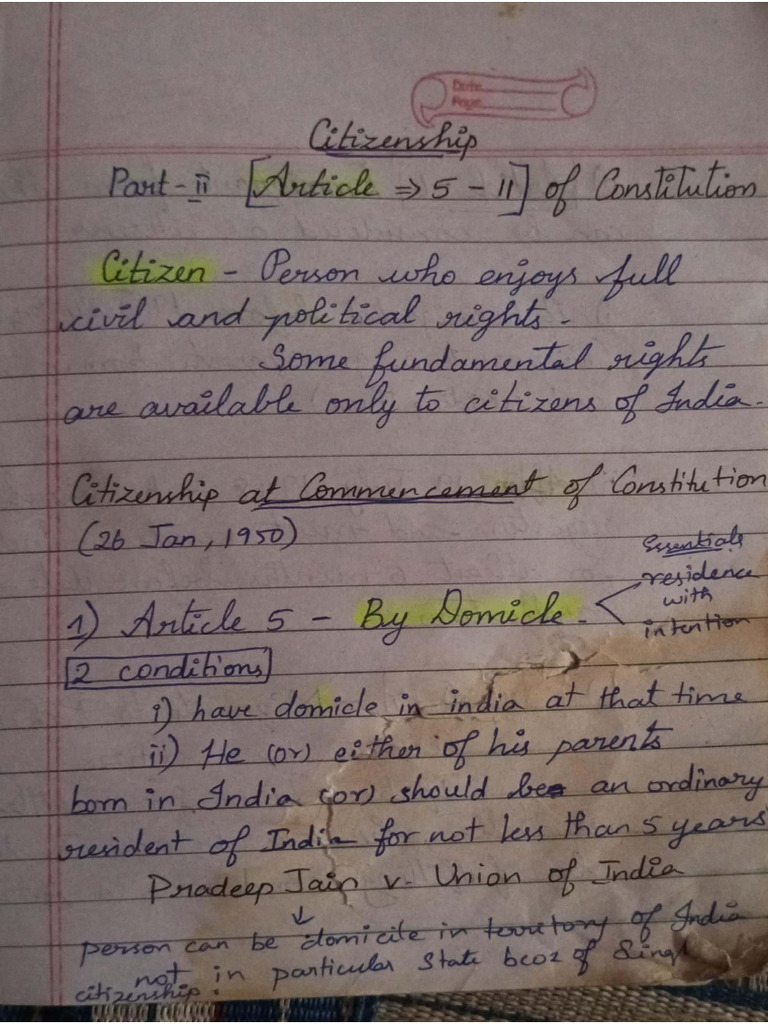 Date
Page
Citizenship
Part-II [Article ⇒ 5 - 11] of Constitution
Citizen - Person who enjoys full
civil and political rights.
Some fundamental rights
are available only to citizens of India.
Citizenship at Commencement of Constitution
(26 Jan, 1950)
Essentials
1) Article 5 - By Domicle - < residence with intention
2 conditions
i) have domicle in india at that time
ii) He (or) either of his parents
born in India (or) should be an ordinary
resident of India for not less than 5 years
Pradeep Jain v. Union of India
↓
person can be domicile in territory of India
not in particular State bcoz of
citizenship.